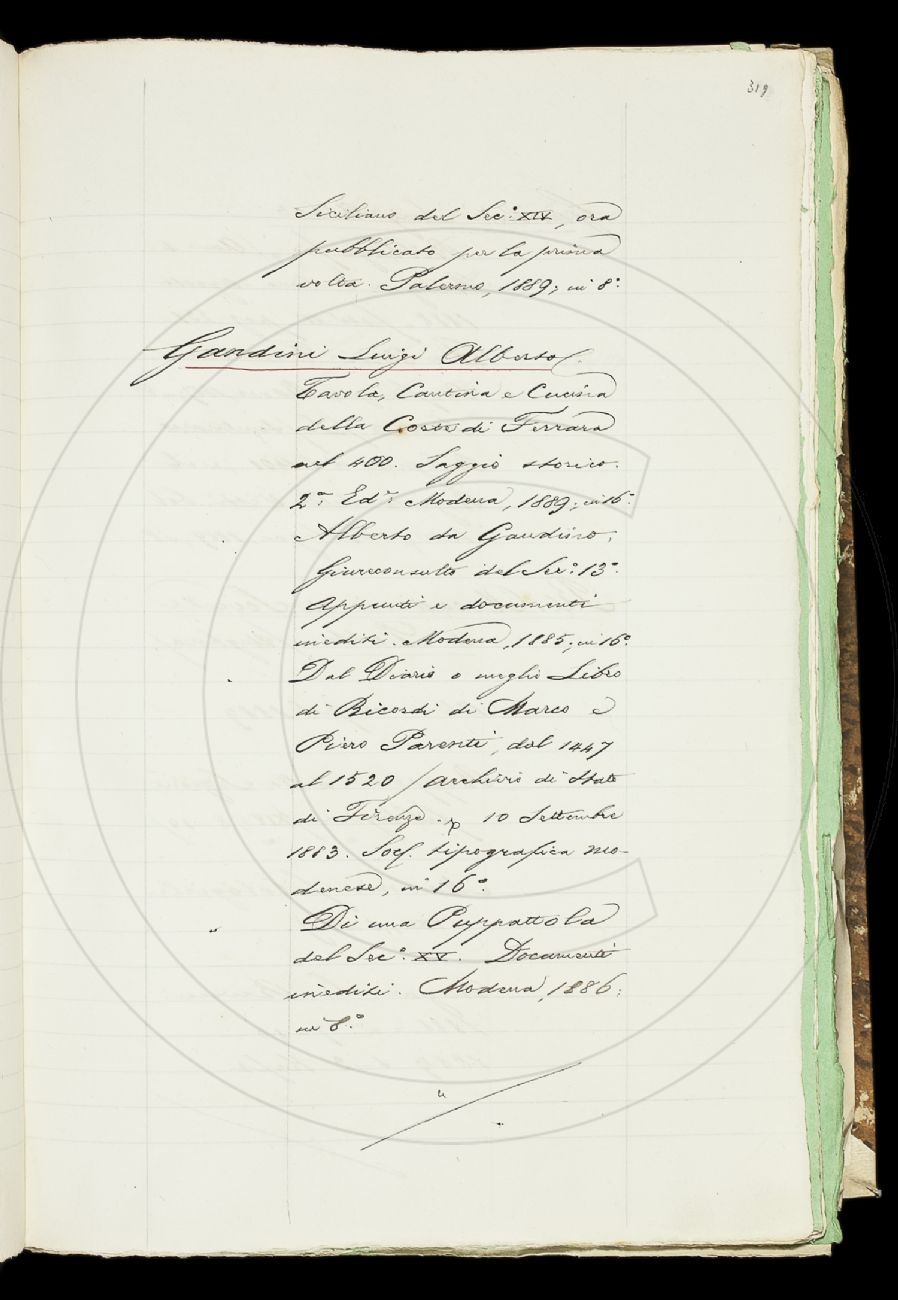 319
Siciliano del Sec.° XIV, ora
pubblicato per la prima
volta. Palermo, 1889; in 8.°
Gandini Luigi Alberto.
Tavola, Cantina e Cucina
della Corte di Ferrara
nel 400. Saggio storico.
2.ª Ed.e Modena, 1889; in 16.°
Alberto da Gandino,
Giureconsulto del Sec.° 13.°
Appunti e documenti
inediti. Modena, 1885; in 16.°
Dal Diario o meglio Libro
di Ricordi di Marco e
Piero Parenti, dal 1447
al 1520 / archivio di Stato
di Firenze. 10 Settembre
1883. Soc. tipografica mo-
denese, in 16.°
" Di una Puppattola
del Sec.° XV. Documenti
inediti. Modena, 1886;
in 8.°